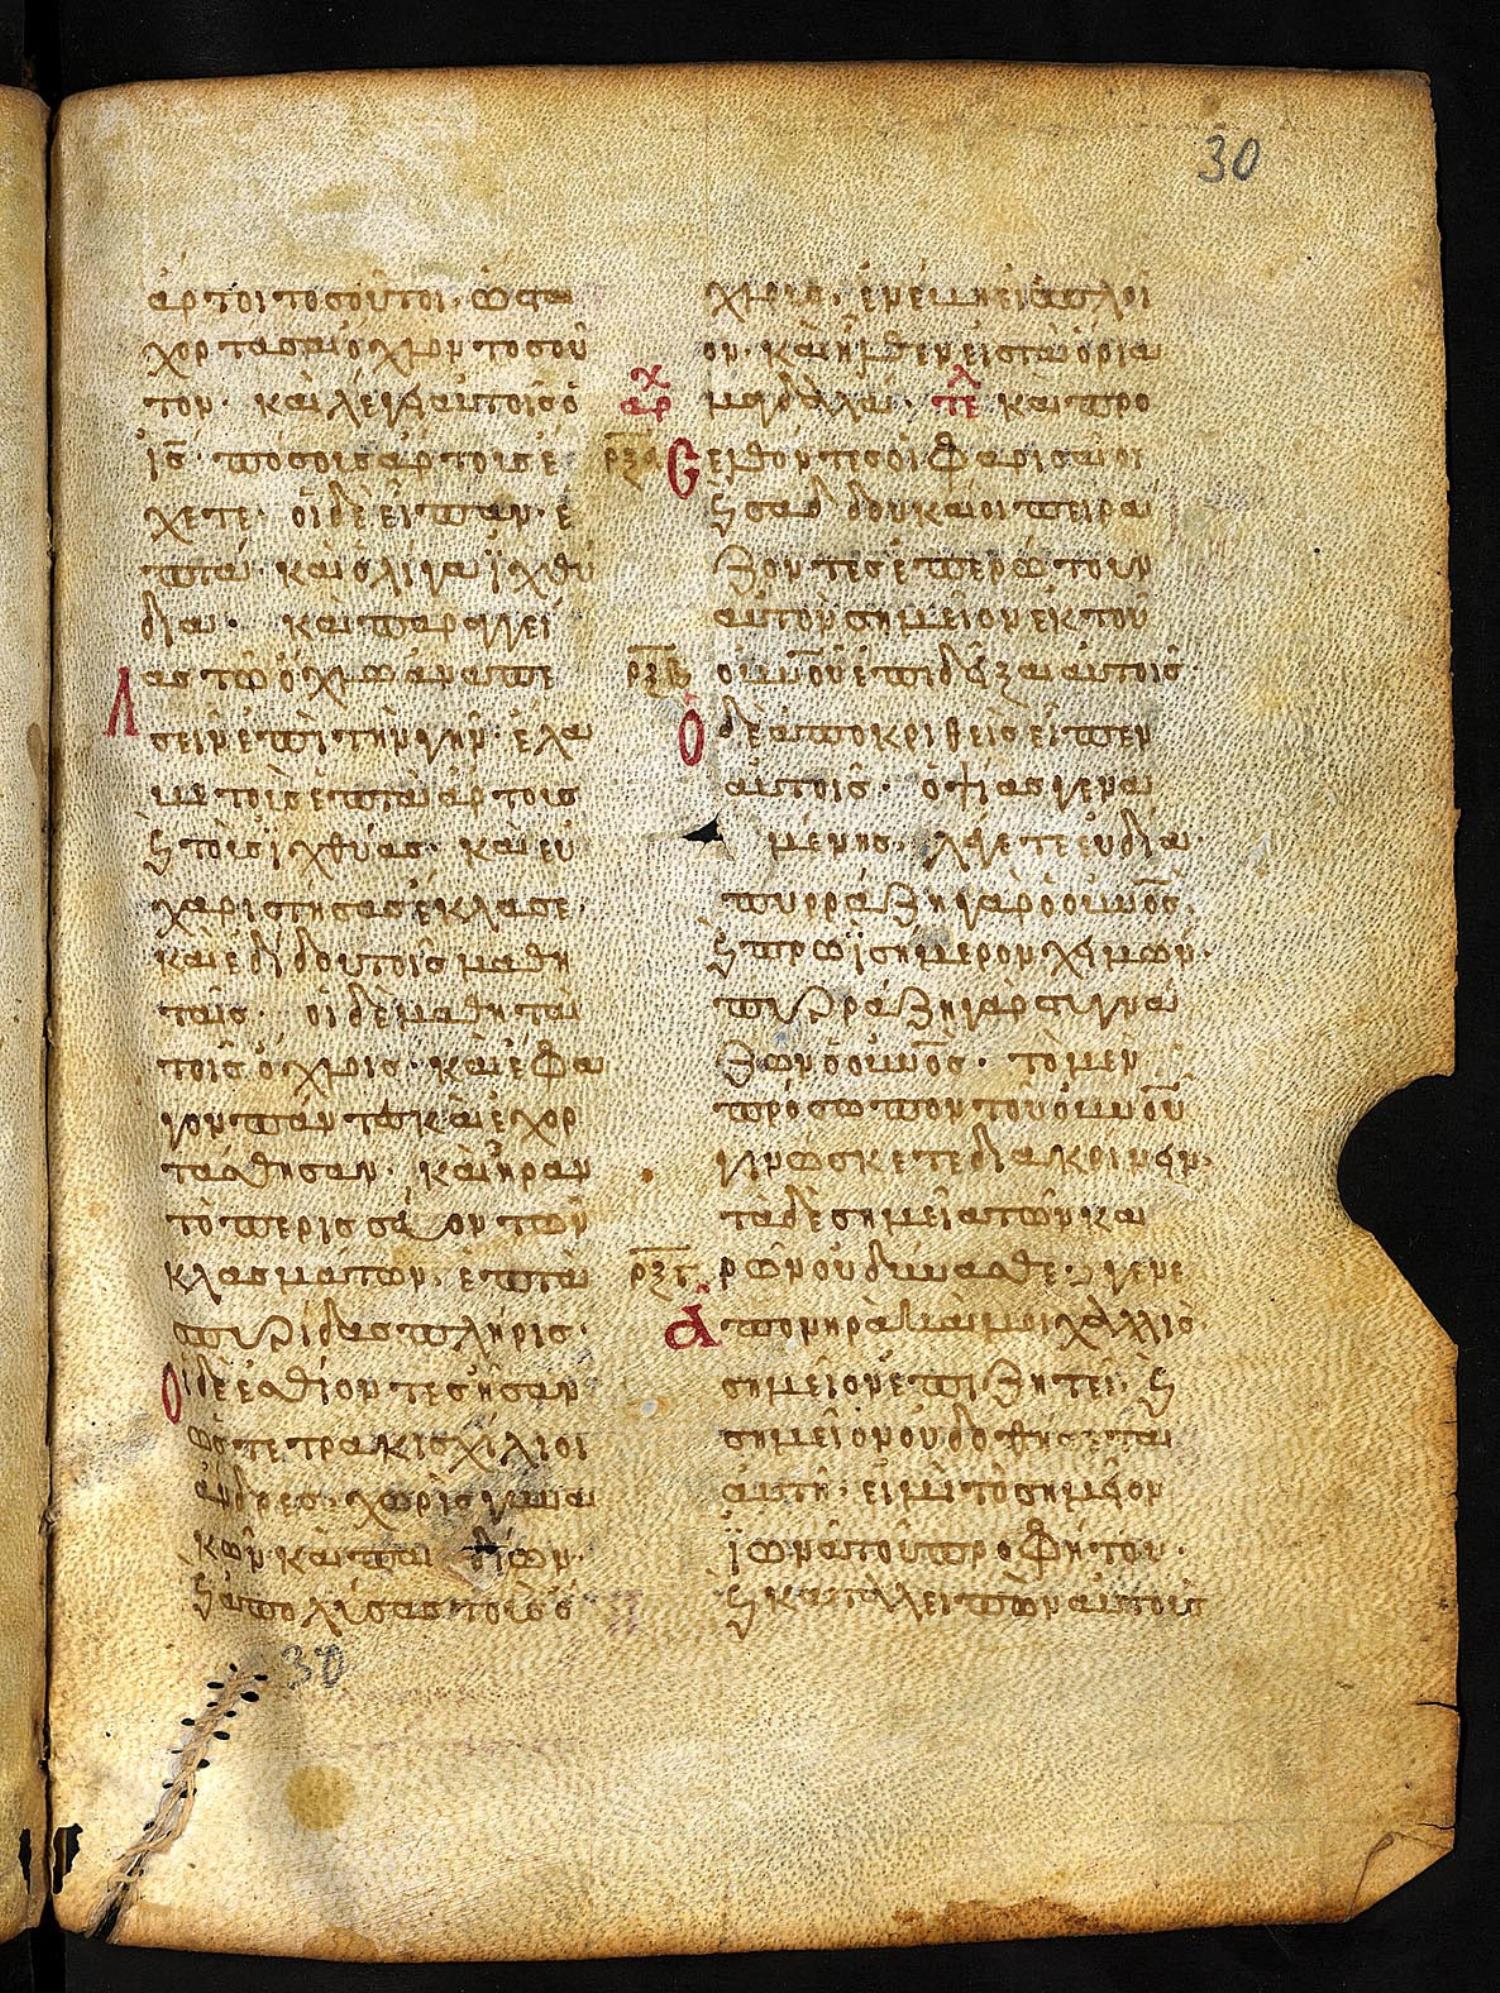 30
ἄρτοι τοσοῦτοι· ὥστε
χορτάσαι ὄχλον τοσοῦ
τον· καὶ λέγει αὐτοῖς ὁ
ις̅· πόσους ἄρτους ἔ
χετε· οἱ δὲ εἶπαν· ἑ
πτά· καὶ ὀλίγα ἰχθύ
δια· καὶ παραγγεί
λας τῶ ὄχλω ἀναπε
σεῖν ἐπὶ τὴν γῆν· ἔλα
βε τοὺς ἑπτὰ ἄρτους
ϗ τοὺς ἰχθύας· καὶ εὐ
χαριστήσας ἔκλασε·
καὶ ἐδίδου τοῖς μαθη
ταῖς· οἱ δὲ μαθηταὶ
τοῖς ὄχλοις· καὶ ἔφα
γον πάντες καὶ ἐχορ
τάσθησαν· καὶ ἦραν
τὸ περισσεῦον τῶν
κλασμάτων· ἑπτὰ
σπυρίδας πλήρις·
Οἱ δὲ ἐσθίοντες ἦσαν
ὡς τετρακισχίλιοι
ἄνδρες· χωρὶς γυναι
κῶν καὶ παιδίων·
ϗ ἀπολύσας τοὺς ὄ
30
χλους· ἐνέβη εἰς τὸ πλοῖ
ον· καὶ ἦλθεν εἰς τὰ ὅρια
αρχ μαγδαλά· τελ καὶ προ
ρξα Ε ελθόντες οἱ φαρισαῖοι
ϗ σαδδουκαῖοι πειρά
ζοντες ἐπερώτουν
αὐτὸν σημεῖον ἐκ τοῦ
ρξβ οὐνο̅υ ἐπιδεῖξαι αὐτοῖς·
Ὁ δὲ ἀποκριθεὶς εἶπεν
αὐτοῖς· ὀψίας γενα
μένης· λέγετε εὐδία·
πυρράζει γὰρ ὁ οὐνο̅ς·
ϗ πρωῒ σήμερον χειμών·
πυρράζει γὰρ στυγνά
ζων ὁ οὐνο̅ς· τὸ μὲν
πρόσωπον τοῦ οὐνο̅υ
γινώσκετε διακρίνειν·
τὰ δὲ σημεῖα τῶν και
ρξγ ρῶν οὐ δύνασθε· γενε
ὰ πονηρὰ καὶ μοιχαλλὶς
σημεῖον ἐπιζητεῖ· ϗ
σημεῖον οὐ δοθήσεται
αὐτῆ· εἰ μὴ τὸ σημεῖον
ἰωνᾶ τοῦ προφήτου·
ϗ καταλειπὼν αὐτοὺς